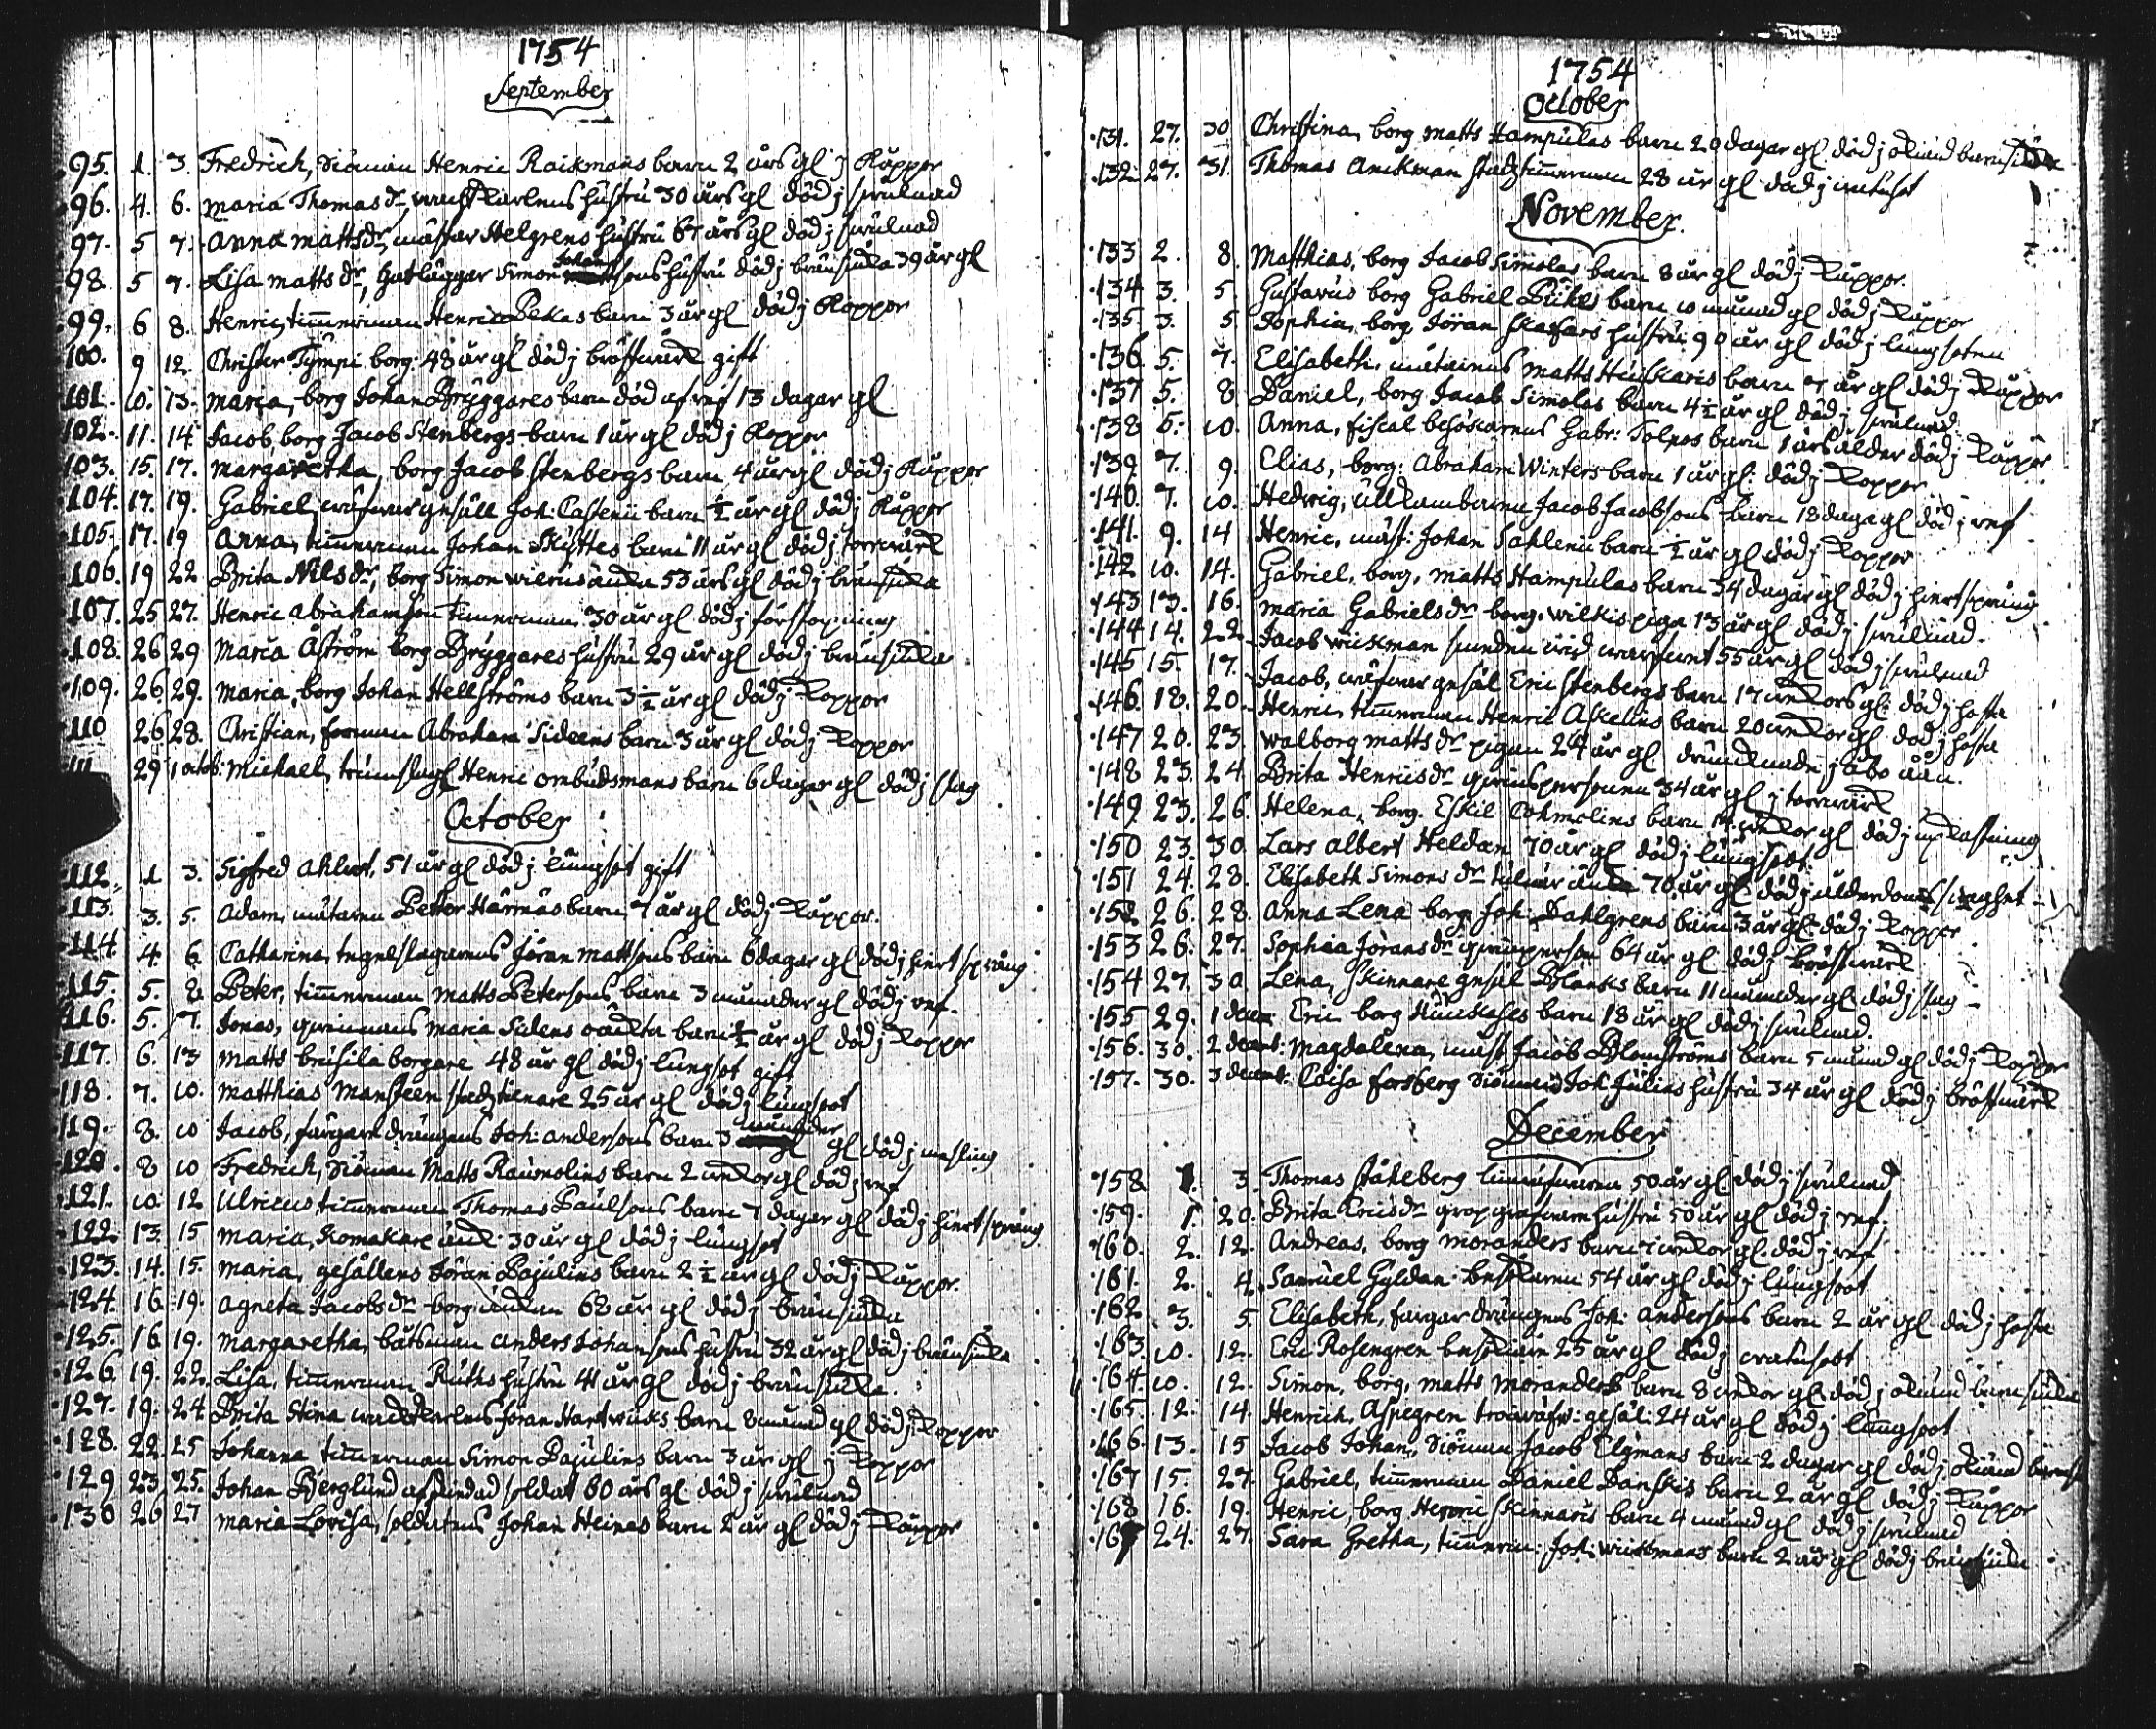 1754
September
95. 1. 3. Fredrich, Siöman Henric Raickmans barn 2 års gl j Kåppor
96. 4. 6. Maria Thomas dr, hustru 30 års gl död j
97. 5 7. Anna Matts dr, mästar Helgrens hustru 67 års gl död j
98. 5 7. Lisa Matts dr, Simon Johan sons hustru död j bränsiuka 39 år gl
99. 6 8. Henric, timmerman Henric Pekas barn 3 år gl död j Koppor
100. 9 12. Christer Tympi borg. 48 år gl död j bröstwärk gift
101. 10. 13. Maria, borg Johan Bryggares barn död af ref 13 dagar gl
102. 11. 14 Jacob borg Jacob Stenbergs barn 1 år gl död j Koppor
103. 15. 17. Margaretha, borg Jacob Stenbergs barn 4 år gl död j Kåppor
104. 17. 19. Gabriel, gesäll Joh: Castenii barn ½ år gl död j Kåppor
105. 17. 19 Anna, timmerman Johan Skyttes barn 11 år gl död j torrwärk
106. 19 22 Brita Nils dr, borg Simon änka 53 års gl död j bränsiuka
107. 25 27. Henric Abrahamson timmerman 30 år gl död j förstoppning
108. 26 29 Maria Åström borg Bryggares hustru 29 år gl död j bränsiuka
109. 26. 29. Maria, borg Johan Hellströms barn 3 ½ år gl död j Koppor
110 26 28. Christian, forman Abraham Sideens barn 3 år gl död j Koppor
111 29 1 octob: Michael, trumslag Henric ombudsmans barn 6 dagar gl död j slag
October
112. 1 3. Sigfred Ahlert, 51 år gl död j lungsot gift
113. 3. 5. Adam, mätaren Petter Härmäs barn 7 år gl död j Kåppor.
114. 4. 6 Catharina, tegelslagarens Jöran Mattsons barn 6 dagar gl död j hiertsprång
115. 5. 8 Peter, timmerman Matts Petersons barn 3 månader gl död j ref.
116. 5. 7. Jonas, Maria Sidens oäckta barn ½ år gl död j Koppor
117. 6. 13 Matts borgare 48 år gl död j lungsot gift
118. 7. 10. Matthias Mansteen stadztienare 25 år gl död j lungsoot
119. 8. 10 Jacob, färgare drängens Joh: Andersons barn 3 månader gl död j mesling
120. 8 10 Fredrich, Siöman Matts Raumolins barn 2 wekor gl död j ref
121. 10 12 Ulricus timmerman Thomas Paulsons barn 7 dagar gl död j hiertsprång
122. 13. 15 Maria, Komakare änk. 30 år gl död j lungsot
123. 14. 15. Maria, gesällens Jöran Pajulins barn 2 ½ år gl död j Kåppor.
124. 16 19. Agneta Jacobs dr borg änkan 62 år gl död j bränsiuka
125. 16 19. Margaretha, båtsman Anders Johansons hustru 32 år gl död j bränsiuka
126 19. 22. Lisa, timmerman Ruths hustru 41 år gl död j bränsiuka.
127. 19. 24 Brita Stina Jöran Hartwicks barn 8 månad gl död j Koppor
128. 22. 25 Johanna timmerman Simon Pajulins barn 3 år gl j Koppor
129 23 25. Johan Berglund afskiedad soldat 60 års gl död j
130 26 27 Maria Lovisa, soldatens Johan Heinas barn 2 år gl död j Kåppor
1754
October
131. 27. 30 Christina, borg Matts Hampulas barn 20 dagar gl död j okiänd barnsiuka
132. 27. 31. Thomas Anckman stadz timmerman 28 år gl död j
November.
133 2. 8. Matthias, borg Jacob Simolas barn 8 år gl död j Kåppor.
134 3. 5. Gustavus borg Gabriel barn 10 månad gl död j Kåppor
135. 3. 5 Sophia, borg Jöran Skaffars hustru 90 år gl död j lungsoten
136. 5. 7. Elisabeth, mätarens Matts barn 7 år gl död j Kåppor
137 5. 8 Daniel, borg Jacob Simolas barn 4 ½ år gl död j
138 5. 10. Anna, fiscal besökarens Gabr: Tolpos barn 1 års ålder död j Kåppor
139 7. 9. Elias, borg: Abraham Winters barn 1 år gl: död j Koppor
140. 7. 10. Hedwig, ullkambaren Jacob Jacobsons barn 18 daga gl död j ref
141. 9. 14 Henric, mäst: Johan Sahlenii barn ½ år gl död j Koppor
142 10. 14. Gabriel, borg. Matts Hampulas barn 34 dagar gl död j hiertsprång
143 13. 16. Maria Gabriels dr borg. Wilkis piga 13 år gl död j
144 14. 22 Jacob Wickman 55 år gl död j
145 15. 17. Jacob, gesäl Eric Stenbergs barn 17 wekors gl: död j hosta
146. 18. 20. Henric, timmerman Henric Askelins barn 20 wekor gl död j hosta
147 20. 23. Walborg Matts dr pigan 24 år gl drunknade j åbo åån.
148 23. 24 Brita Henrics dr personen 34 år gl j torrwärk
149 23. 26. Helena, borg. Eskil Cohmolins barn wekor gl död j upkastning
150 23. 30. Lars Albert Heldan 70 år gl död j lungsoot
151 24. 28. Elisabeth Simons dr änka 70 år gl död j ålderdoms swaghet
152 26. 28. Anna Lena borg Joh: Dahlgrens barn 3 år gl död j Koppor
153 26. 27. Sophia Jörans dr person 64 år gl död j bröstwärk
154 27. 30. Lena, Skinnare gesäl Blanks barn 11 månader gl död j slag
155 29. 1 decem: Eric borg barn 18 år gl död j
156. 30. 2 decemb: Magdalena, mäst Jacob Blomströms barn 5 månad gl död j Koppor
157. 30. 3 decemb: Caisa Forsberg Siöman Joh. Julias hustru 34 år gl död j bröstwärk
December
158 1. 3. Thomas Ståkeberg 50 år gl död j
159. 1. 20. Brita Erics dr hustru 50 år gl död j ref.
160. 2. 12. Andreas, borg Moranders barn 7 wekor gl död j ref
161. 2. 4. Samuel Gyldan besökaren 54 år gl död j lungsoot
162 3. 5. Elisabeth, färgar drängens Joh: Andersons barn 2 år gl död j hosta
163 10. 12. Eric Rosengren besökare 25 år gl död j
164. 10. 12. Simon, borg. Matts Moranders barn 8 wekor gl död j okiänd barnsiuka
165. 12. 14. Henrich Aspegren gesäl 24 år gl död j lungsoot
166. 13. 15 Jacob Johan, Siöman Jacob Elgmans barn 2 dagar gl död j okiänd barns
167 15. 27. Gabriel, timmerman Daniel Danskis barn 2 år gl död j Kåppor
168 16. 19. Henric, borg Henric Skinnaris barn 4 månad gl död j
169 24. 27. Sara Gretha, timmerm: Joh: barn 2 år gl död j bränsiuka